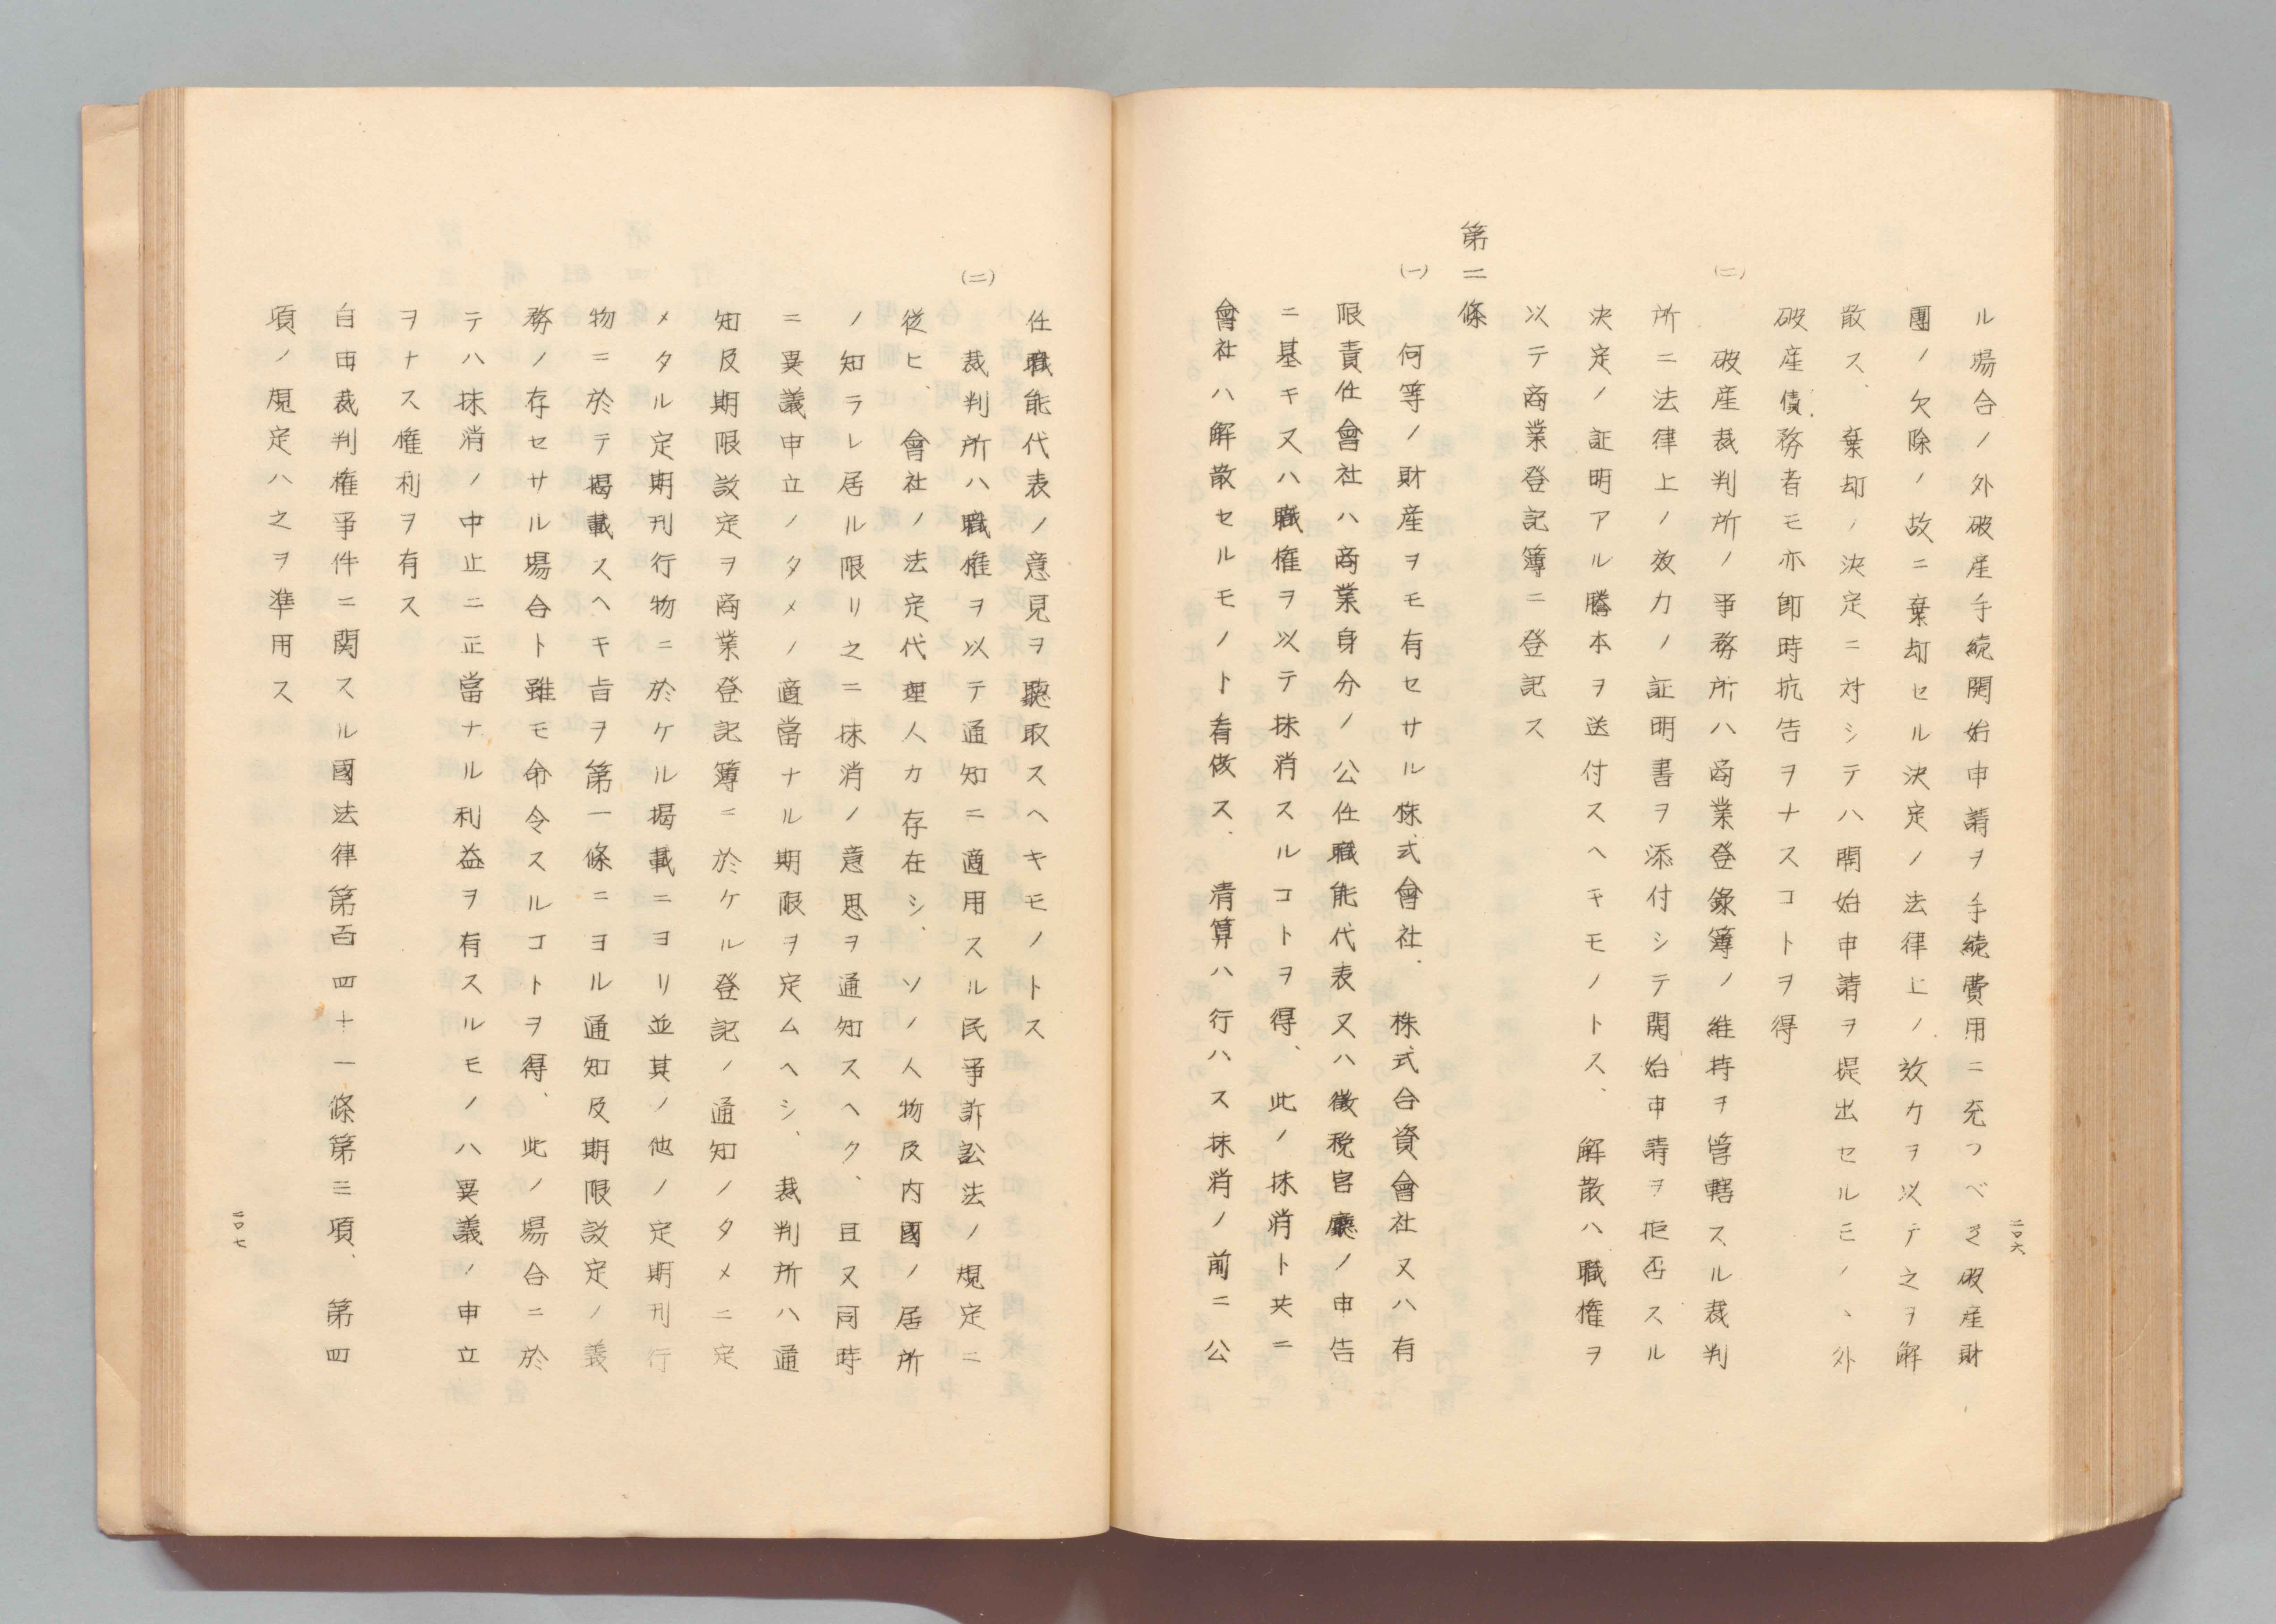 二〇六
ル場合ノ外破産手続開始申請ヲ手続費用ニ充ツベキ破産財
團ノ欠除ノ故ニ棄却セル決定ノ法律上ノ效力ヲ以テ之ヲ解
散ス、棄却ノ決定ニ対シテハ開始申請ヲ提出セルモノヽ外
破産債務者モ亦即時抗告ヲナスコトヲ得
(二)
破産裁判所ノ事務所ハ商業登錄簿ノ維持ヲ管轄スル裁判
所ニ法律上ノ效力ノ証明書ヲ添付シテ開始申請ヲ拒否スル
決定ノ証明アル謄本ヲ送付スヘキモノトス、解散ハ職権ヲ
以テ商業登記簿ニ登記ス
第二條
(一)
何等ノ財産ヲモ有セサル株式會社、株式合資會社又ハ有
限責任會社ハ商業身分ノ公任職能代表又ハ徴税官廳ノ申告
ニ基キ又ハ職権ヲ以テ抹消スルコトヲ得、此ノ抹消ト共ニ
會社ハ解散セルモノト看做ス、清算ハ行ハス抹消ノ前ニ公
任職能代表ノ意見ヲ聽取スヘキモノトス
(二)
裁判所ハ職権ヲ以テ通知ニ適用スル民事訴訟法ノ規定ニ
従ヒ、會社ノ法定代理人カ存在シ、ソノ人物及内國ノ居所
ノ知ラレ居ル限リ之ニ抹消ノ意思ヲ通知スヘク、且又同時
ニ異議申立ノタメノ適當ナル期限ヲ定ムヘシ、裁判所ハ通
知及期限設定ヲ商業登記簿ニ於ケル登記ノ通知ノタメニ定
メタル定期刊行物ニ於ケル揭載ニヨリ並其ノ他ノ定期刊行
物ニ於テ揭載スヘキ旨ヲ第一條ニヨル通知及期限設定ノ義
務ノ存セサル場合ト雖モ命令スルコトヲ得、此ノ場合ニ於
テハ抹消ノ中止ニ正當ナル利益ヲ有スルモノハ異議ノ申立
ヲナス権利ヲ有ス
自由裁判権事件ニ関スル國法律第百四十一條第三項、第四
項ノ規定ハ之ヲ準用ス
二〇七